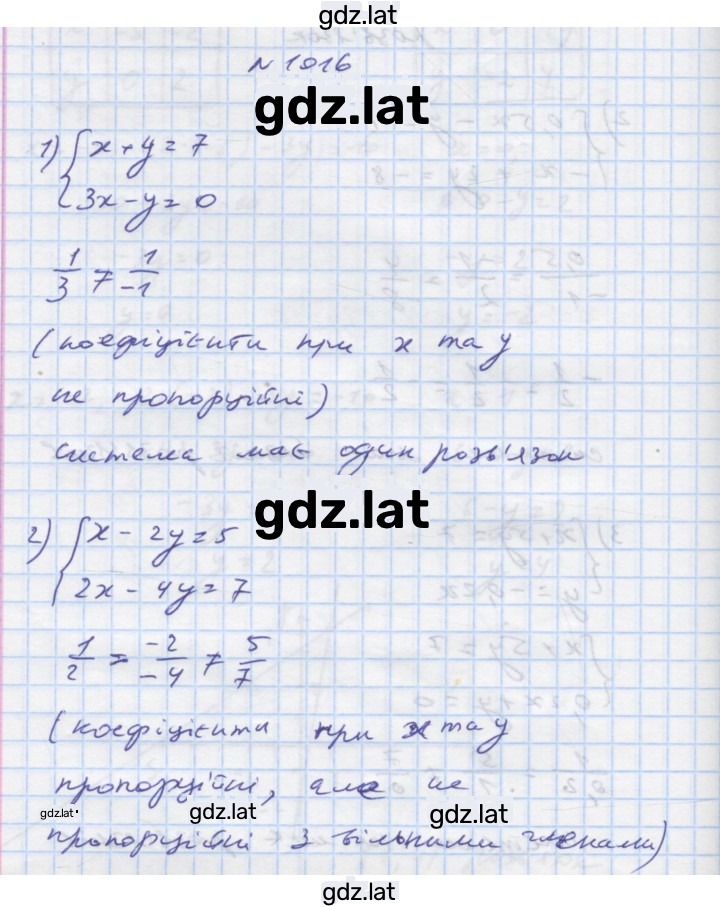 gdz.lat
№ 1016
gdz.lat
1) { x + y = 7
3x - y = 0
1/3 ≠ 1/-1
(коефіцієнти при x та y
не пропорційні)
система має один розв'язок
gdz.lat
2) { x - 2y = 5
2x - 4y = 7
1/2 = -2/-4 ≠ 5/7
(коефіцієнти при x та y
пропорційні, але не
gdz.lat gdz.lat gdz.lat
пропорційні з вільними членами)
gdz.lat